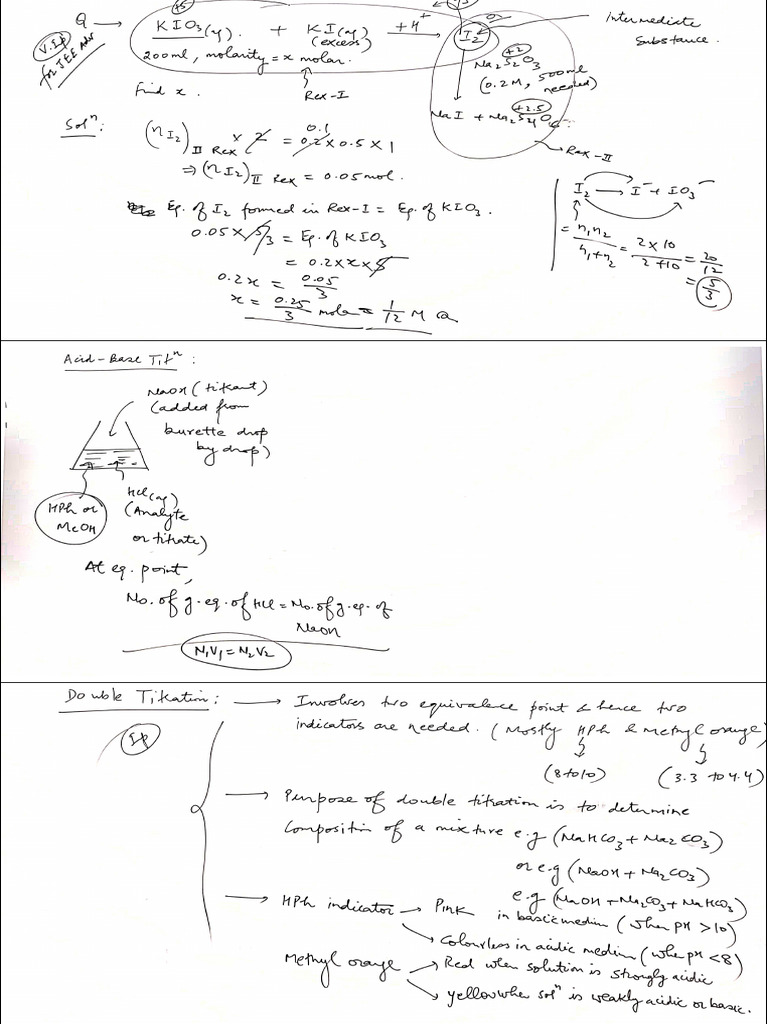 +5
Q → KIO3(aq). + KI(aq) +H+ → I2
(excess)
V.Ip for JEE Adv
200ml, molarity = x molar.
Intermediate
Substance.
+2
Na2S2O3
(0.2M, 500ml
needed)
Find x.
Rex-I
+2.5
NaI + Na2S4O6
Rex-II
Soln:
(nI2)II Rex × 2 = 0.2 × 0.5 × 1
0.1
⇒ (nI2)II Rex = 0.05 mol.
Eq. of I2 formed in Rex-I = Eq. of KIO3.
0.05 × 5/3 = Eq. of KIO3
= 0.2 × x × 5
0.2x = 0.05/3
x = 0.25/3 molar = 1/12 M
I2 → I- + IO3-
= n1n2/n1+n2 = 2×10/2+10 = 20/12
= 5/3
Acid-Base Titn:
NaOH (titrant)
(added from
burette drop
by drop)
HCl(aq)
(Analyte
or titrate)
HPh or
MeOH
At eq. point,
No. of g.eq. of HCl = No. of g.eq. of
NaOH
N1V1 = N2V2
Double Titration: → Involves two equivalence point & hence two
indicators are needed. (Mostly HPh & Methyl orange)
(8 to 10) (3.3 to 4.4)
Ip
→ Purpose of double titration is to determine
composition of a mixture e.g (NaHCO3 + Na2CO3)
or e.g (NaOH + Na2CO3)
e.g (NaOH + Na2CO3 + NaHCO3)
→ HPh indicator → Pink in basic medium (when pH > 10)
→ Colourless in acidic medium (when pH < 8)
Methyl orange → Red when solution is strongly acidic
→ yellow when soln is weakly acidic or basic.